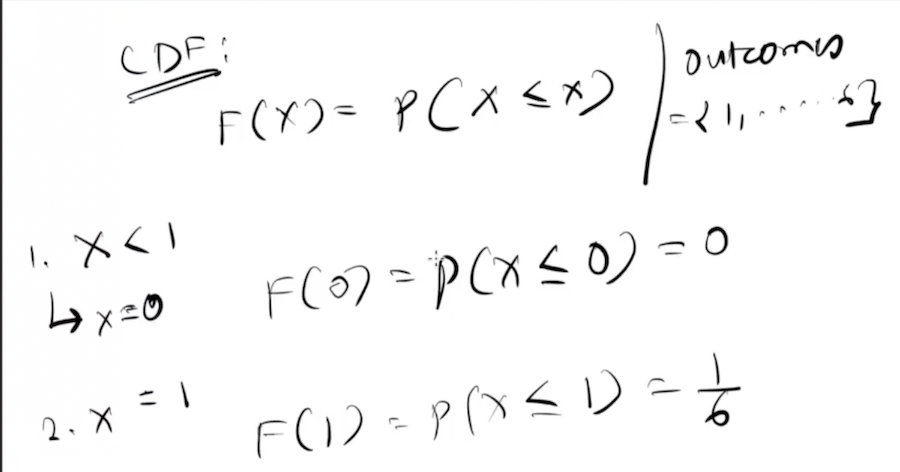 CDF:
F(X) = P(X ≤ x)
outcomes
= {1, ...... 6}
1. X < 1
↳ x = 0
F(0) = P(X ≤ 0) = 0
2. X = 1
F(1) = P(X ≤ 1) = 1/6